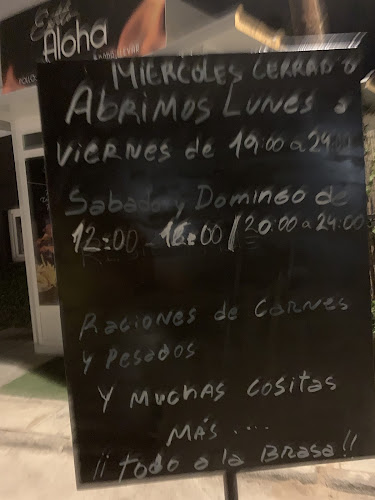 Aloha
MIERCOLES CERRADO
ABRIMOS LUNES a
VIERNES de 19:00 a 24:00
Sabado y Domingo de
12:00 - 16:00 / 20:00 a 24:00
Raciones de Carnes
y Pesados
Y MUCHAS COSITAS
MÁS ....
¡¡ Todo a la BRASA !!